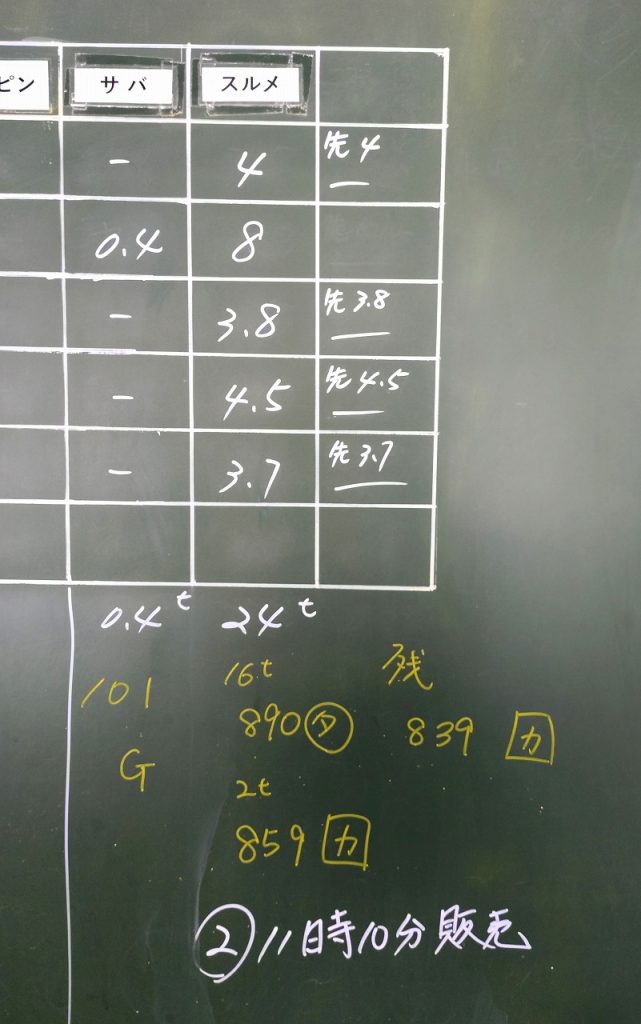 ピン サバ スルメ
- 4 先4
0.4 8
- 3.8 先3.8
- 4.5 先4.5
- 3.7 先3.7
0.4t 24t
16t 残
101 890㋟ 839 カ
G
2t
859 カ
②11時10分販売